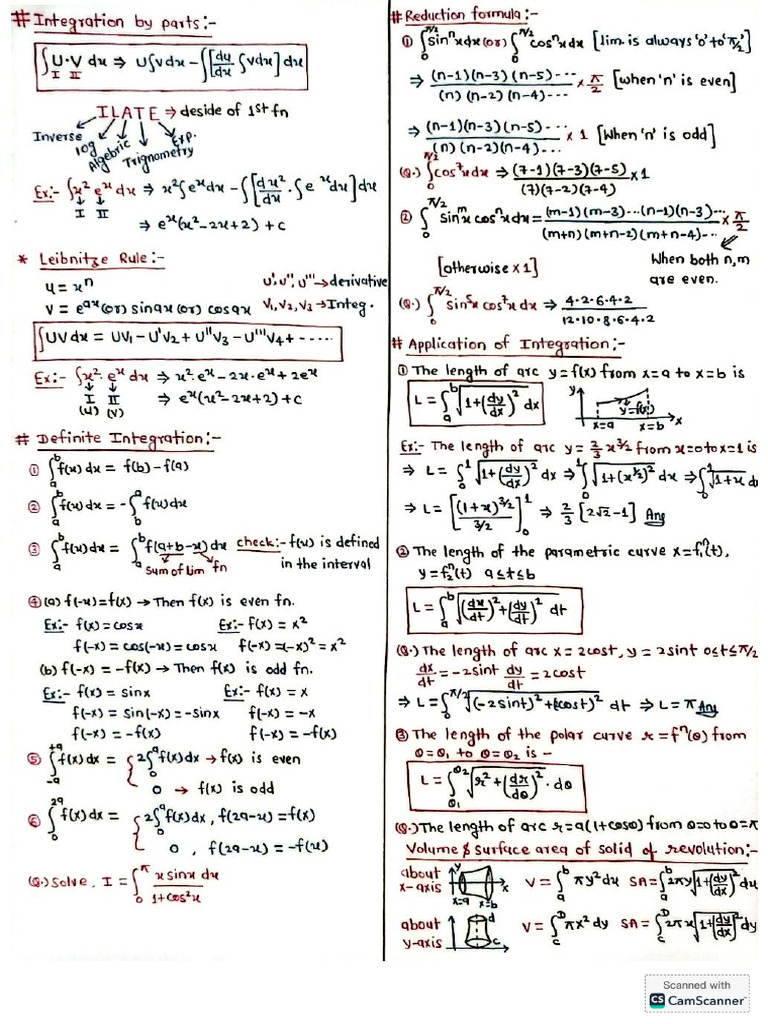 # Integration by parts:-
∫U·V dx ⇒ U∫vdx - ∫[du/dx ∫vdx] dx
I II
ILATE → deside of 1st fn
Inverse log Algebric Trignometry Exp.
Ex:- ∫x² eˣ dx ⇒ x²∫eˣdx - ∫[dx²/dx · ∫eˣdx]dx
I II
⇒ eˣ(x²-2x+2)+c
* Leibnitze Rule:-
u = xⁿ
u',u'',u''' → derivative
v = eᵃˣ(or) sinax(or) cosax
v₁,v₂,v₃ → Integ.
∫UV dx = UV₁ - U'V₂ + U''V₃ - U'''V₄ + -----
Ex:- ∫x²· eˣ dx ⇒ x²·eˣ-2x·eˣ+2eˣ
I II
(u) (v)
⇒ eˣ(x²-2x+2)+c
# Definite Integration:-
① ∫ₐᵇ f(x) dx = f(b)-f(a)
② ∫ₐᵇ f(x) dx = -∫_b^a f(x)dx
③ ∫ₐᵇ f(x)dx = ∫ₐᵇ f(a+b-x)dx check:- f(x) is defined
sum of lim fn in the interval
④ (a) f(-x)=f(x) → Then f(x) is even fn.
Ex:- f(x) = cosx Ex:- f(x) = x²
f(-x) = cos(-x) = cosx f(-x) =(-x)² = x²
(b) f(-x) = -f(x) → Then f(x) is odd fn.
Ex:- f(x) = sinx Ex:- f(x) = x
f(-x) = sin(-x) = -sinx f(-x) = -x
f(-x) = -f(x) f(-x) = -f(x)
⑤ ∫₋ₐ⁺ᵃ f(x)dx = { 2∫₀ᵃ f(x)dx → f(x) is even
0 → f(x) is odd
⑥ ∫₀²ᵃ f(x)dx = { 2∫₀ᵃ f(x)dx, f(2a-x)=f(x)
0 , f(2a-x) = -f(x)
(Q.) Solve, I = ∫₀^π x sinx dx / 1+cos²x
# Reduction formula:-
① ∫₀^π/2 sinⁿxdx (or) ∫₀^π/2 cosⁿxdx [lim. is always '0' to 'π/2']
⇒ (n-1)(n-3)(n-5)--- / (n)(n-2)(n-4)--- × π/2 [when 'n' is even]
⇒ (n-1)(n-3)(n-5)--- / (n)(n-2)(n-4)--- × 1 [When 'n' is odd]
(Q.) ∫₀^π/2 cos⁷xdx ⇒ (7-1)(7-3)(7-5) / (7)(7-2)(7-4) × 1
② ∫₀^π/2 sinᵐx cosⁿxdx = (m-1)(m-3)---(n-1)(n-3)-- / (m+n)(m+n-2)(m+n-4)--- × π/2
[otherwise × 1]
When both n,m
are even.
(Q.) ∫₀^π/2 sin⁵x cos⁷x dx ⇒ 4·2·6·4·2 / 12·10·8·6·4·2
# Application of Integration:-
① The length of arc y=f(x) from x=a to x=b is
L = ∫ₐᵇ √(1+(dy/dx)²) dx
y y=f(x) x=a x=b x
Ex:- The length of arc y=2/3 x^3/2 from x=0 to x=1 is
⇒ L = ∫₀¹ √(1+(dy/dx)²) dx ⇒ ∫₀¹ √(1+(x^1/2)²) dx ⇒ ∫₀¹ √(1+x) dx
⇒ L = [(1+x)^3/2 / 3/2]₀¹ ⇒ 2/3 [2√2-1] Ans
② The length of the parametric curve x=f₁ⁿ(t),
y=f₂ⁿ(t) a≤t≤b
L = ∫ₐᵇ √((dx/dt)²+(dy/dt)²) dt
(Q.) The length of arc x = 2cost, y = 2sint 0≤t≤π/2
dx/dt = -2sint dy/dt = 2cost
⇒ L = ∫₀^π/2 √((-2sint)²+(2cost)²) dt ⇒ L = π Ans
③ The length of the polar curve r = fⁿ(θ) from
θ=θ₁ to θ=θ₂ is -
L = ∫_θ₁^θ₂ √(r²+(dr/dθ)²) · dθ
(Q.) The length of arc r=a(1+cosθ) from θ=0 to θ=π
Volume & surface area of solid of revolution:-
about
x-axis
y x=a x=b x
V = ∫ₐᵇ πy²dx SA = ∫ₐᵇ 2πy √(1+(dy/dx)²) dx
about
y-axis
d c
V = ∫_C^D πx²dy SA = ∫_C^D 2πx √(1+(dy/dx)²) dy
Scanned with
CS CamScanner